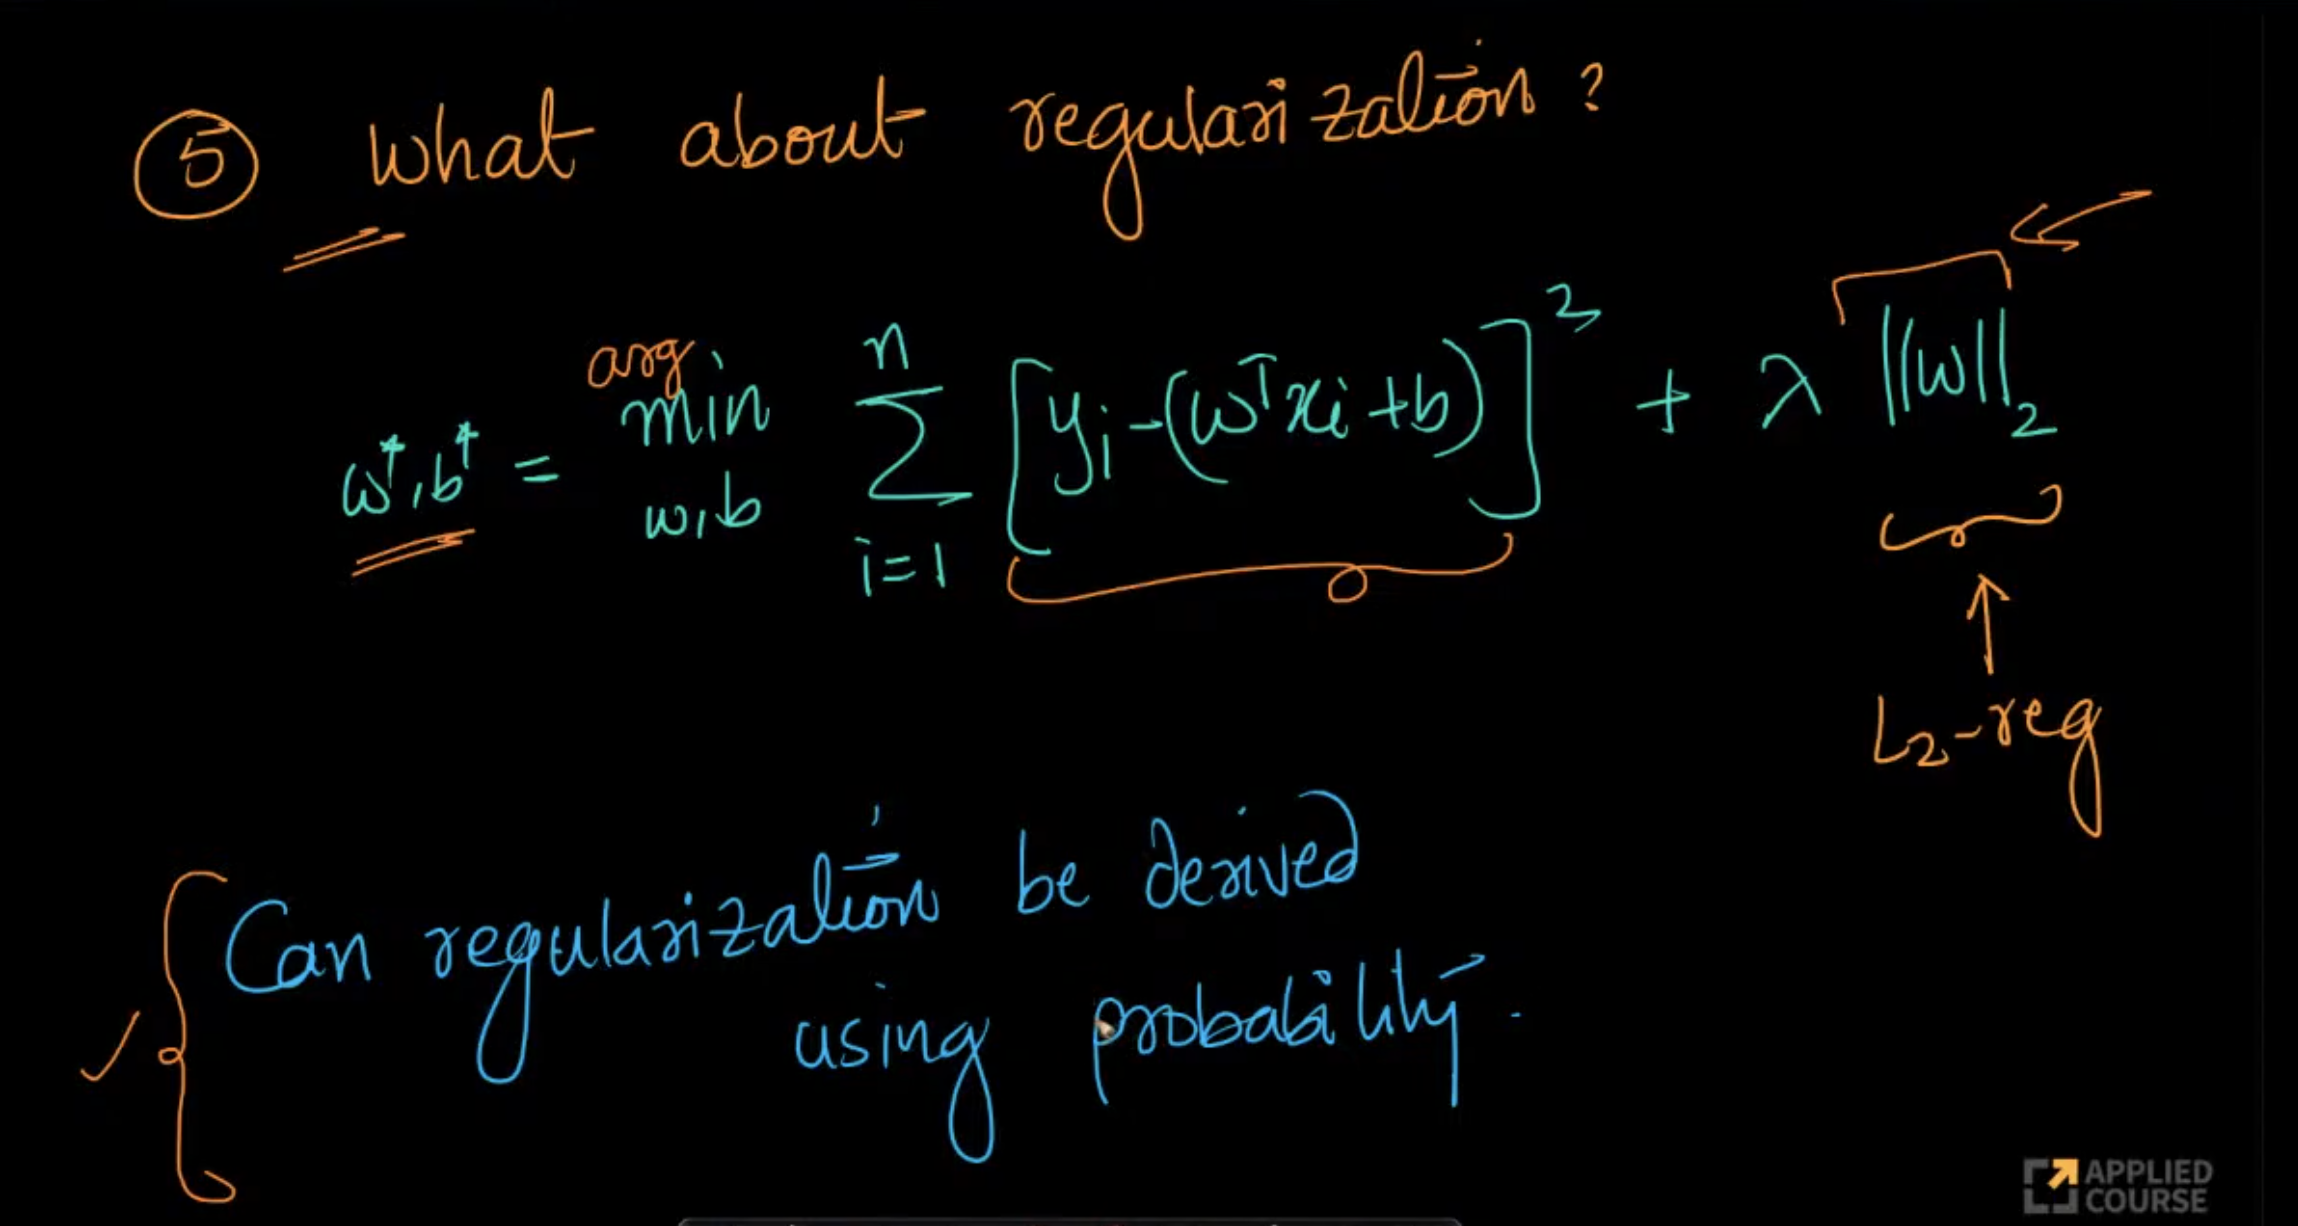 ⑤ What about regularization?
w*, b* = arg min w,b n Σ i=1 [yi - (wᵀxi + b)]² + λ ||w||₂
L2-reg
Can regularization be derived
using probability.
APPLIED
COURSE